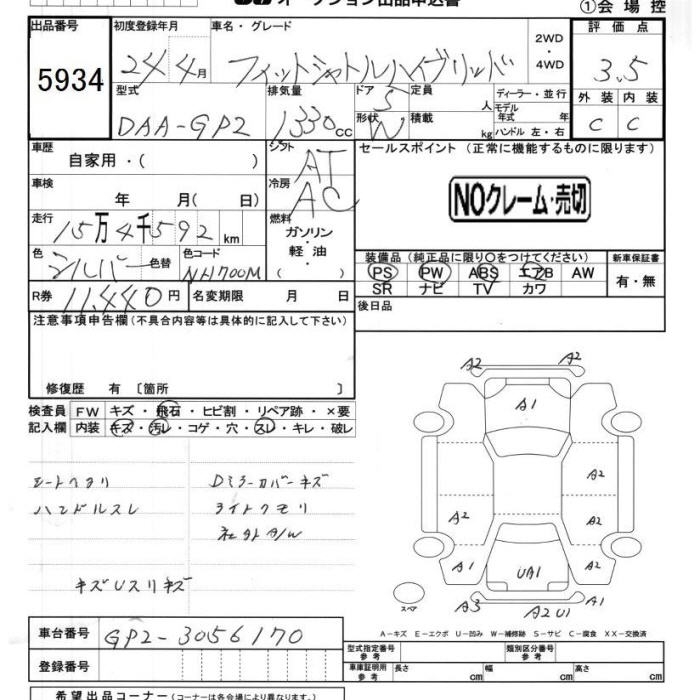 オークション出品申込書
①会場控
出品番号
5934
初度登録年月
24 4月
車名・グレード
フィットシャトルハイブリッド
2WD
・
4WD
評価点
3.5
外装 内装
C C
型式
DAA-GP2
排気量
1330cc
ドア
5
形状
W
定員
人
積載
kg
ディーラー・並行
モデル年式 年
ハンドル 左・右
車歴
自家用・( )
シフト
AT
車検
年 月( 日)
冷房
AC
走行
15万4千592km
燃料
ガソリン
・
軽油
( )
色
シルバー
色替
色コード
NH700M
R券 11,440円
名変期限 月 日
セールスポイント (正常に機能するものに限ります)
NOクレーム・売切
装備品 (純正品に限り〇をつけてください)
PS PW ABS エアB AW
SR ナビ TV カワ
新車保証書
有・無
後日品
注意事項申告欄 (不具合内容等は具体的に記入して下さい)
修復歴 有 〔箇所 〕
検査員 FW キズ・飛石・ヒビ割・リペア跡・×要
記入欄 内装 キズ・汚レ・コゲ・穴・スレ・キレ・破レ
シートヘタリ
ハンドルスレ
Dミラーカバーキズ
ライトクモリ
社外A/W
キズUスリキズ
A2 A2
A1
A2
A2 A2
A1 UA1 A1
スペア
A3 A2 U1
A-キズ E-エクボ U-凹み W-補修跡 S-サビ C-腐食 XX-交換済
車台番号 GP2-3056170
登録番号
型式指定番号
参考
類別区分番号
参考
車庫証明用
参考
長さ cm 幅 cm 高さ cm
希望出品コーナー (コーナーは各会場により異なります)